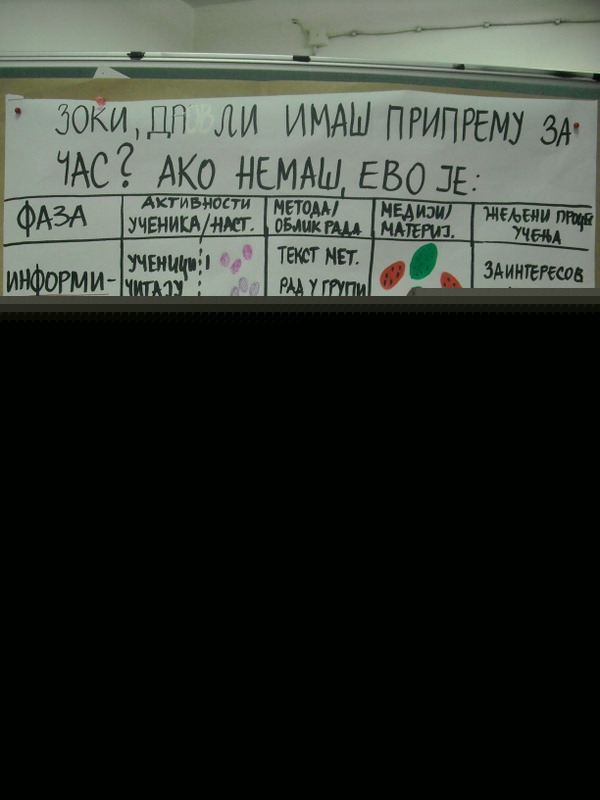 ЗОКИ, ДА ЛИ ИМАШ ПРИПРЕМУ ЗА
ЧАС? АКО НЕМАШ, ЕВО ЈЕ:
ФАЗА
АКТИВНОСТИ
УЧЕНИКА/НАСТ.
МЕТОДА/
ОБЛИК РАДА
МЕДИЈИ/
МАТЕРИЈ.
ЖЕЉЕНИ
УЧЕЊА
ИНФОРМИ-
УЧЕНИЦИ
ЧИТАЈУ
ТЕКСТ МЕТ.
РАД У ГРУПИ
ЗАИНТЕРЕСОВ